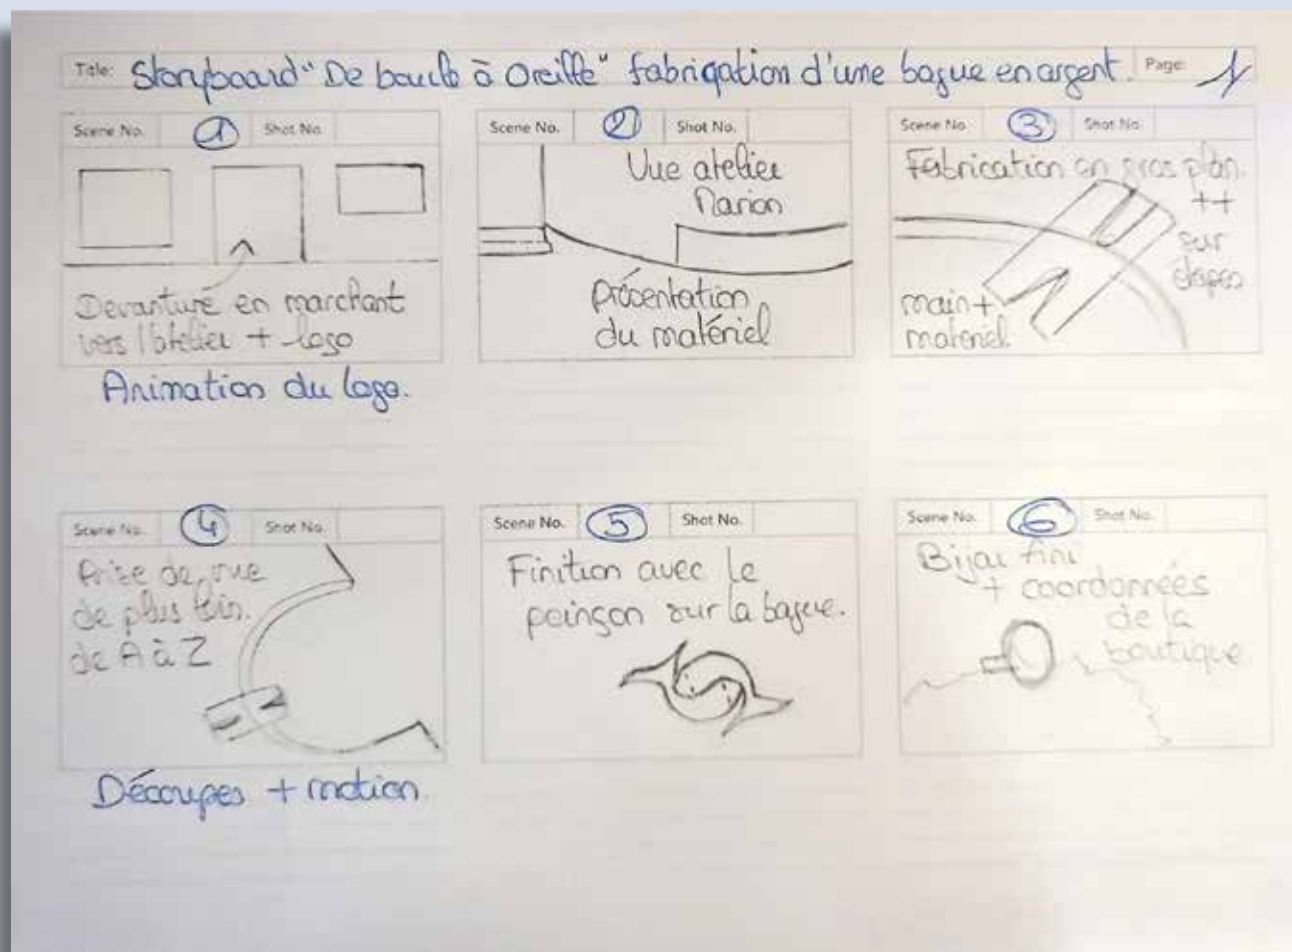 Title: Storyboard "De boucle à Oreille" fabrication d'une bague en argent. Page: 1
Scene No. 1 Shot No.
Devanture en marchant
vers l'atelier + logo
Animation du logo.
Scene No. 2 Shot No.
Vue atelier
Marion
Présentation
du matériel
Scene No. 3 Shot No.
Fabrication en gros plan.
++
sur
étapes
main +
matériel.
Scene No. 4 Shot No.
Prise de vue
de plus loin.
de A à Z
Découpes + motion.
Scene No. 5 Shot No.
Finition avec le
poinçon sur la bague.
Scene No. 6 Shot No.
Bijou fini
+ coordonnées
de la
boutique